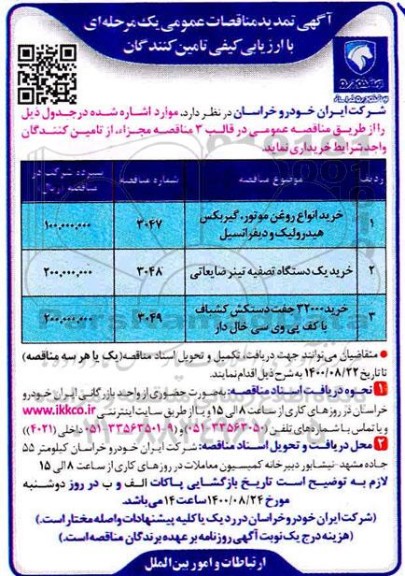 آگهی تمدید مناقصات عمومی یک مرحله‌ای
با ارزیابی کیفی تامین کنندگان
شرکت ایران خودرو خراسان در نظر دارد، موارد اشاره شده در جدول ذیل
را از طریق مناقصه عمومی در قالب ۳ مناقصه مجزاء، از تامین کنندگان
واجد شرایط خریداری نماید.
ردیف موضوع مناقصه شماره مناقصه سپرده شرکت در مناقصه (ریال)
۱ خرید انواع روغن موتور، گیربکس هیدرولیک و دیفرانسیل ۳۰۴۷ ۱۰۰,۰۰۰,۰۰۰
۲ خرید یک دستگاه تصفیه تینر ضایعاتی ۳۰۴۸ ۲۰۰,۰۰۰,۰۰۰
۳ خرید ۳۲۰۰۰ جفت دستکش کشباف با کف پی وی سی خال دار ۳۰۴۹ ۲۰۰,۰۰۰,۰۰۰
متقاضیان می‌توانند جهت دریافت، تکمیل و تحویل اسناد مناقصه (یک یا هر سه مناقصه)
تا تاریخ ۱۴۰۰/۰۸/۲۲ به شرح ذیل اقدام نمایند.
۱ نحوه دریافت اسناد مناقصه: به صورت حضوری از واحد بازرگانی ایران خودرو
خراسان در روز های کاری از ساعت ۸ الی ۱۵ و یا از طریق سایت اینترنتی www.ikkco.ir
و یا تماس با شماره های تلفن: (۵-۳۳۵۶۳۰۵۰-۰۵۱) و (۹-۳۳۵۶۳۵۰۱-۰۵۱ داخلی (۴۰۲۱))
۲ محل دریافت و تحویل اسناد مناقصه: شرکت ایران خودرو خراسان کیلومتر ۵۵
جاده مشهد - نیشابور دبیرخانه کمیسیون معاملات در روز های کاری از ساعت ۸ الی ۱۵
لازم به توضیح است تاریخ بازگشایی پاکات الف و ب در روز دوشنبه
مورخ ۱۴۰۰/۰۸/۲۴ ساعت ۱۴ می‌باشد.
(شرکت ایران خودرو خراسان در رد یک یا کلیه پیشنهادات واصله مختار است.)
(هزینه درج یک نوبت آگهی روزنامه بر عهده برندگان مناقصه است.)
ارتباطات و امور بین الملل